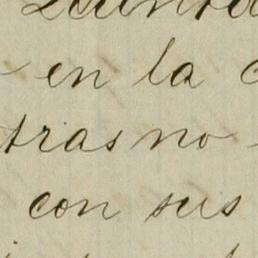 en la
tras no
con sus